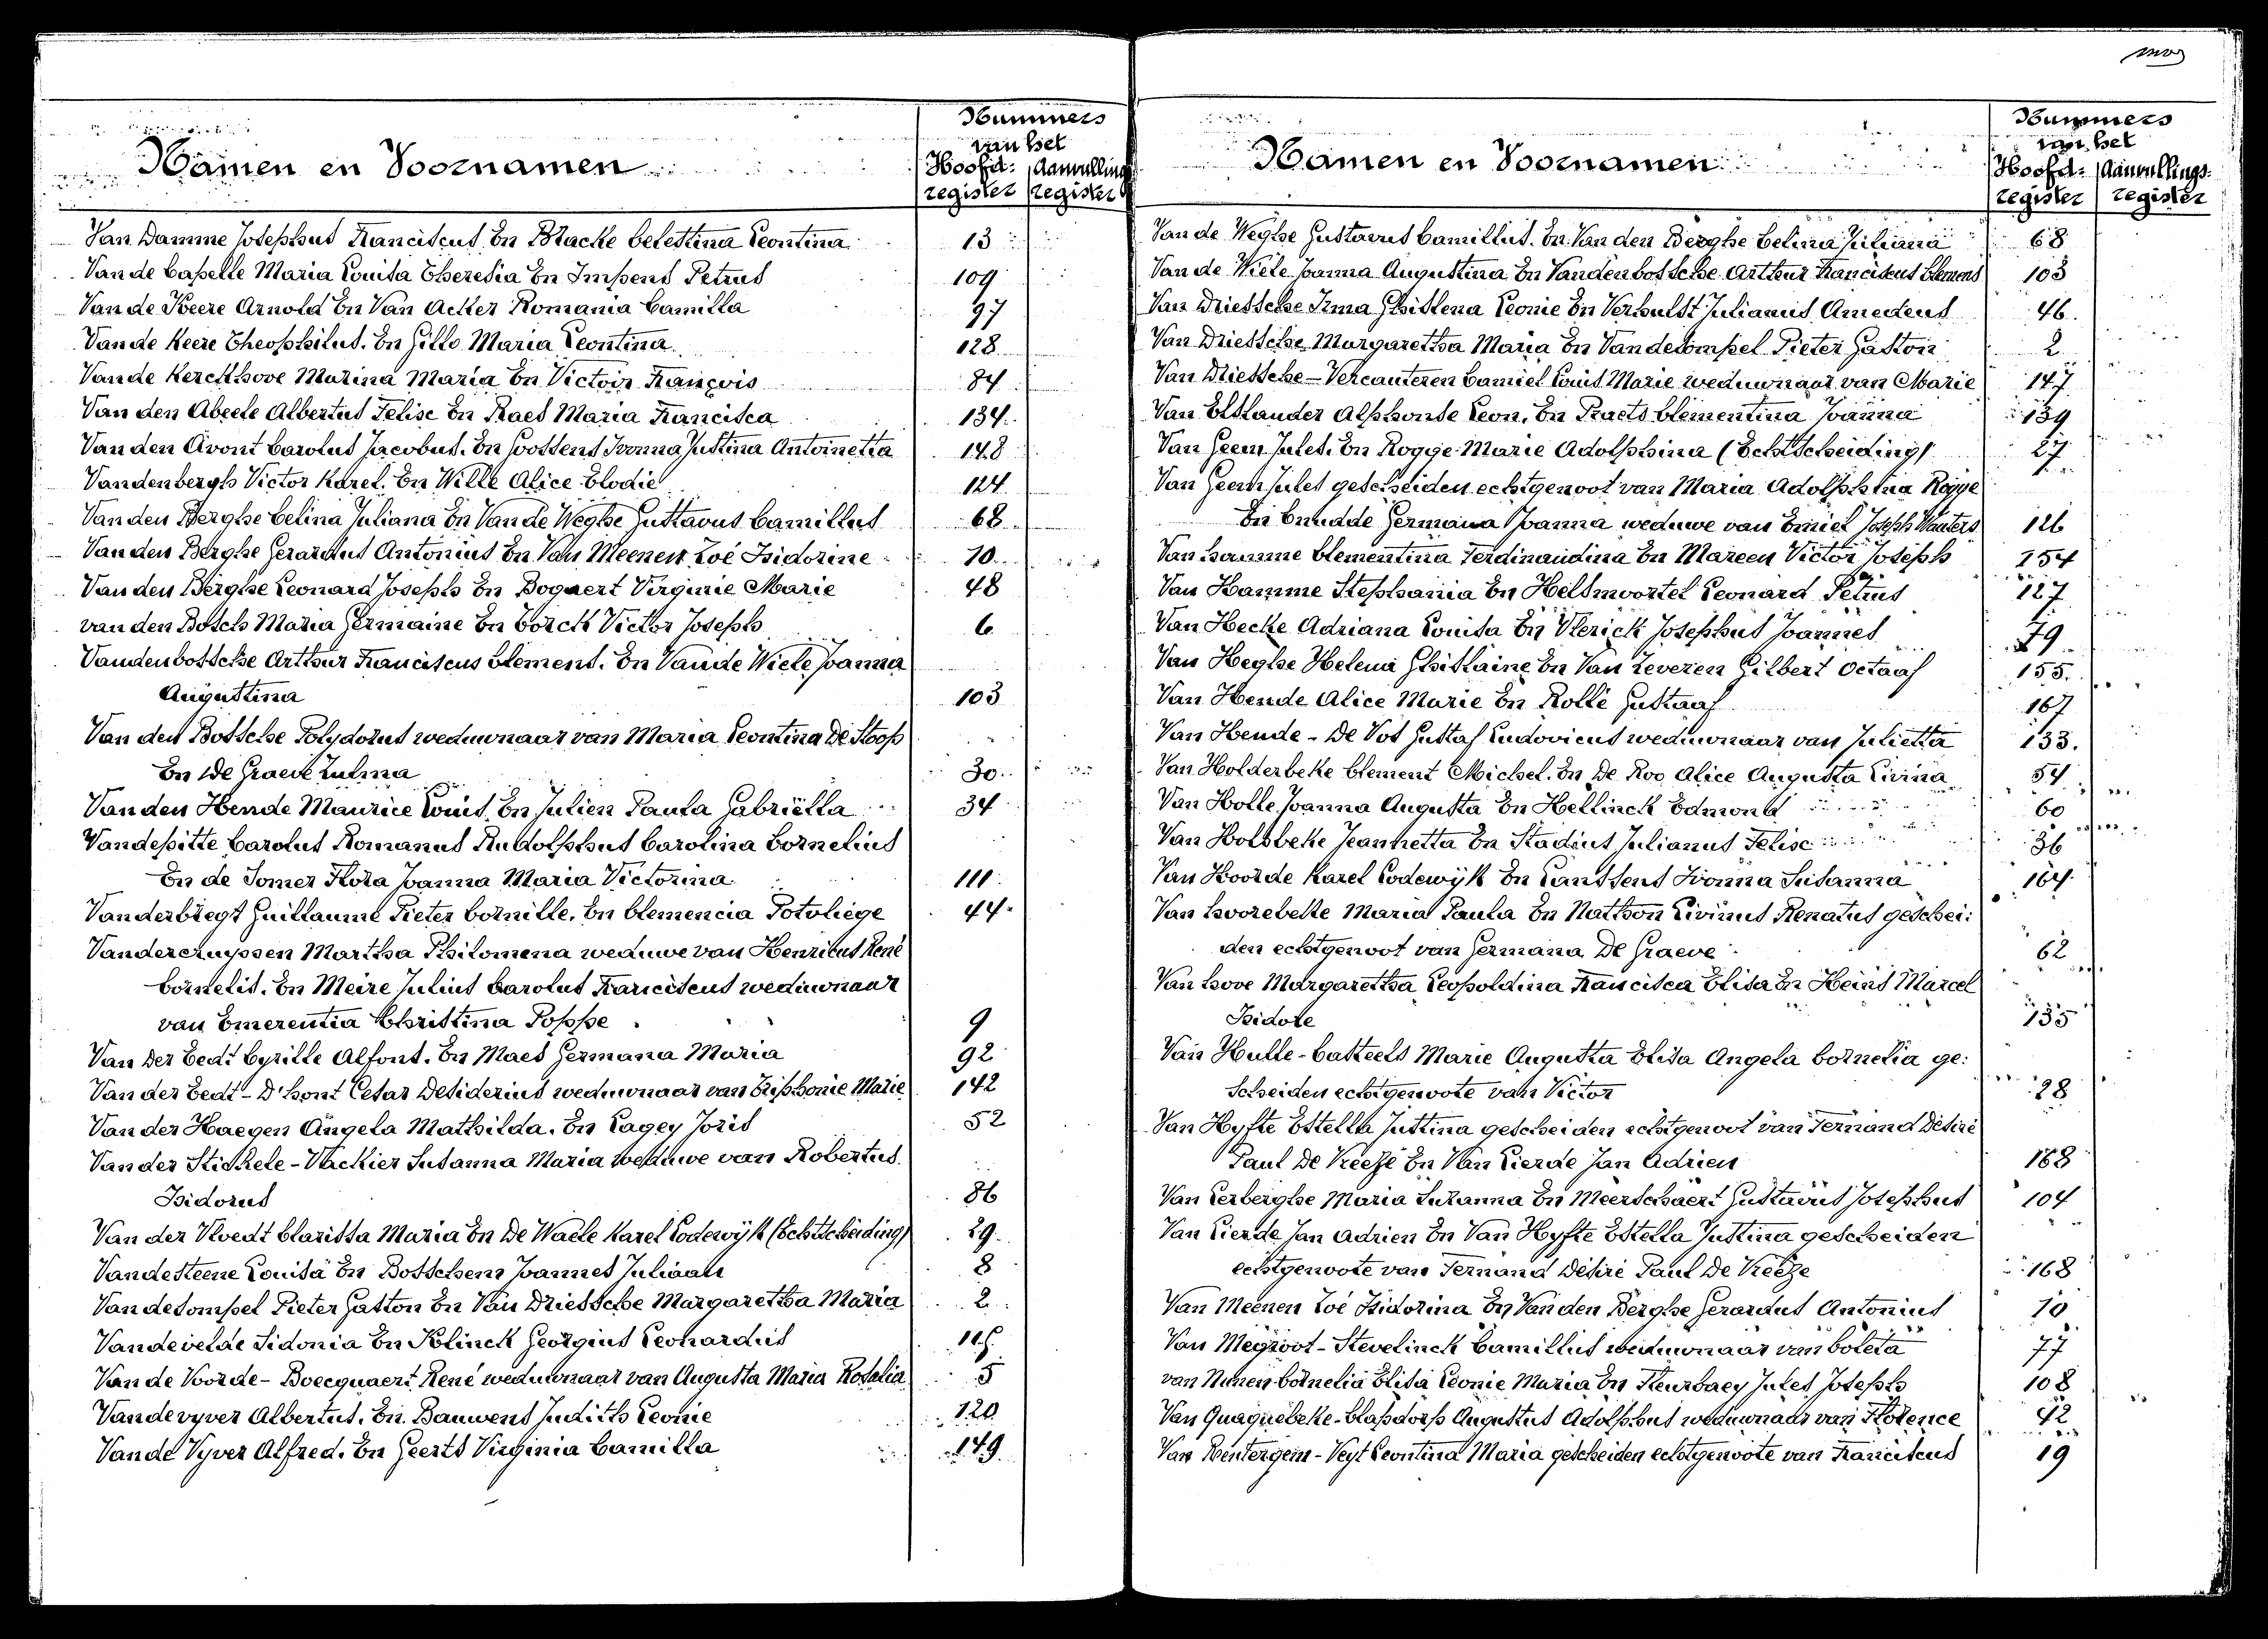 Namen en Voornamen
Nummers
van het
Hoofd- Aanvulling
register register
Van Damme Josephus Franciscus. En Bracke Celestina Leontina 13
Van de Capelle Maria Louisa Theresia En Impens Petrus 109
Van de Keere Arnold En Van Acker Romania Camilla 97
Van de Keere Theophilus. En Gillo Maria Leontina. 128
Van de Kerckhove Marina Maria En Victoir François 84
Van den Abeele Albertus Felix En Raes Maria Francisca 134
Van den Avont Carolus Jacobus. En Goossens Ivonna Justina Antoinetta 148
Vandenbergh Victor Karel. En Wille Alice Elodie 124
Van den Berghe Celina Juliana En Van de Weghe Gustavus Camillus 68
Van den Berghe Gerardus Antonius En Van Meenen Zoé Isidorine 10
Van den Berghe Leonard Joseph En Bogaert Virginie Marie 48
van den Bosch Maria Germaine En Corck Victor Joseph 6
Vandenbossche Arthur Franciscus Clement. En Van de Wiele Joanna
Augustina 103
Van den Bossche Polydorus weduwnaar van Maria Leontina De Stoop
En De Graeve Zulma 30
Van den Hende Maurice Louis. En Julien Paula Gabriëlla 34
Vandepitte Carolus Romanus Rudolphus Carolina Cornelius
En de Somer Flora Joanna Maria Victorina 111
Vanderbiegt Guillaume Pieter Cornille. En Clemencia Potvliege 44
Vandercruyssen Martha Philomena weduwe van Henricus René
Cornelis. En Meire Julius Carolus Franciscus weduwnaar
van Emerentia Christina Poppe 9
Van Der Eedt Cyrille Alfons. En Maes Germana Maria 92
Van der Eedt - D'hont Cesar Desiderius weduwnaar van Triphonie Marie 142
Van der Haegen Angela Mathilda. En Lagey Joris 52
Van der Stichele - Vlackier Susanna Maria weduwe van Robertus
Isidorus 86
Van der Vloedt Clarissa Maria En De Waele Karel Lodewijk (Echtscheiding) 29
Vandesteene Louisa En Bosschem Joannes Juliaan 8
Vandesompel Pieter Gaston En Van Driessche Margaretha Maria 2
Vandevelde Sidonia En Polinck Georgius Leonardus
Van de Voorde - Boecquaert René weduwnaar van Augusta Maria Rosalia 5
Vandevyver Albertus. En Bauwens Judith Leonie 120
Van de Vyver Alfred. En Geerts Virginia Camilla 149
Namen en Voornamen
Nummers
van het
Hoofd- Aanvullings-
register register
Van de Weghe Gustavus Camillus. En Van den Berghe Celina Juliana 68
Van de Wiele Joanna Augustina En Vandenbossche Arthur Franciscus Clement 103
Van Driessche Irma Ghislena Leonie En Verhulst Julianus Amedeus 46
Van Driessche Margaretha Maria En Vandesompel Pieter Gaston 2
Van Driessche - Vercauteren Camiel Louis Marie weduwnaar van Marie 147
Van Elslander Alphonse Leon. En Praets Clementina Joanna 139
Van Geem Jules. En Rogge Marie Adolphina (Echtscheiding) 27
Van Geem Jules gescheiden echtgenoot van Maria Adolphina Rogge
En Cnudde Germana Joanna weduwe van Emiel Joseph Wauters 126
Van hamme Clementina Ferdinandina En Mareen Victor Joseph 154
Van Hamme Stephania En Helsmoortel Leonard Petrus 127
Van Hecke Adriana Louisa En Vlerick Josephus Joannes 79
Van Heghe Helena Ghislaine En Van Zeveren Gilbert Octaaf 155
Van Hende Alice Marie En Rollé Gustaaf 167
Van Hende - De Vos Gustaf Ludovicus weduwnaar van Julietta 133.
Van Holderbeke Clement Michel. En De Roo Alice Augusta Livina 54
Van Holle Joanna Augusta En Hellinck Edmond 60
Van Holsbeke Jeannetta En Stadius Julianus Felix 36
Van Hoorde Karel Lodewijk En Lanssens Ivonna Susanna 164
Van hoorebeke Maria Paula En Nathon Livinus Renatus geschei:
den echtgenoot van Germana De Graeve 62
Van hove Margaretha Leopoldina Francisca Elisa En Heins Marcel
Isidore 135
Van Hulle - Casteels Marie Augusta Elisa Angela Cornelia ge:
scheiden echtgenoote van Victor 28
Van Hyfte Estella Justina gescheiden echtgenoot van Fernand Désiré
Paul De Vreeze En Van Lierde Jan Adrien 168
Van Lerberghe Maria Suzanna En Meerschaert Gustavus Josephus 104
Van Lierde Jan Adrien En Van Hyfte Estella Justina gescheiden
echtgenoote van Fernand Désiré Paul De Vreeze 168
Van Meenen Zoé Isidorina En Van den Berghe Gerardus Antonius 10
Van Megroot - Stevelinck Camillus weduwnaar van Coleta 77
van Nunen Cornelia Elisa Leonie Maria En Fleurbaey Jules Joseph 108
Van Quaquebeke - Clapdorp Augustus Adolphus weduwnaar van Florence 42
Van Rentergem - Veyt Leontina Maria gescheiden echtgenoote van Franciscus 19